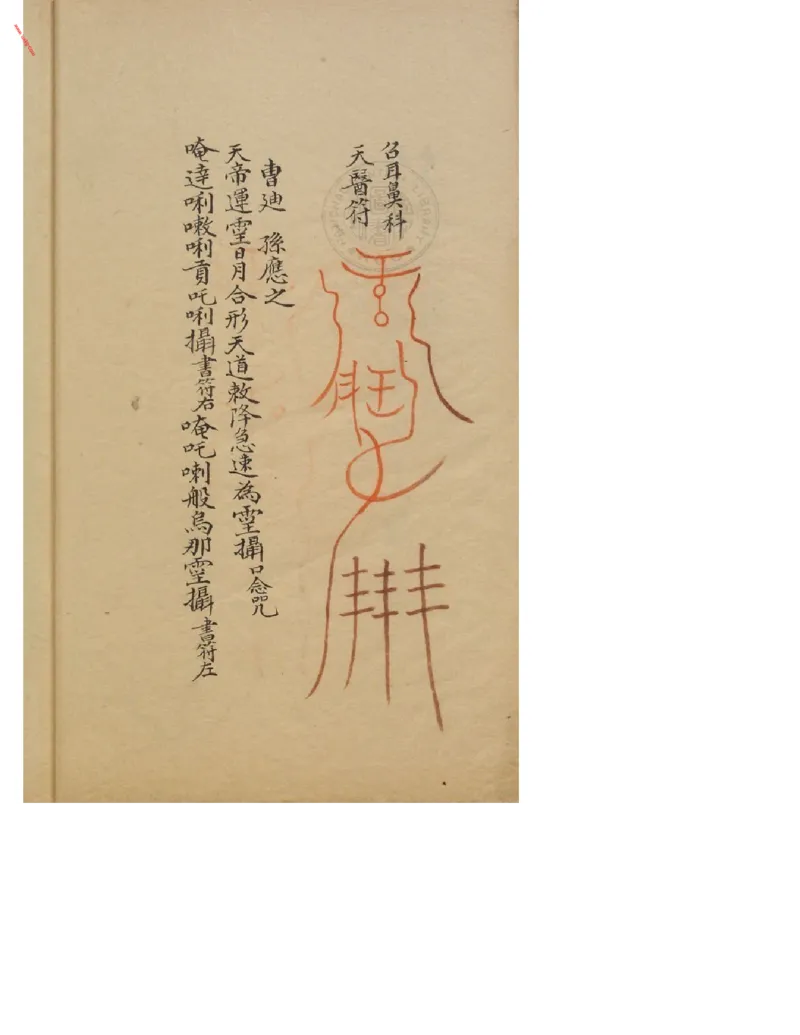 召耳鼻科
天醫符
曹廸 孫應之
天帝運𩃞日月合形天道敕降急速為𩃞攝口念咒
唵達唎嗷唎貢吒唎攝書符右唵吒喇般烏那𩃞攝書符左